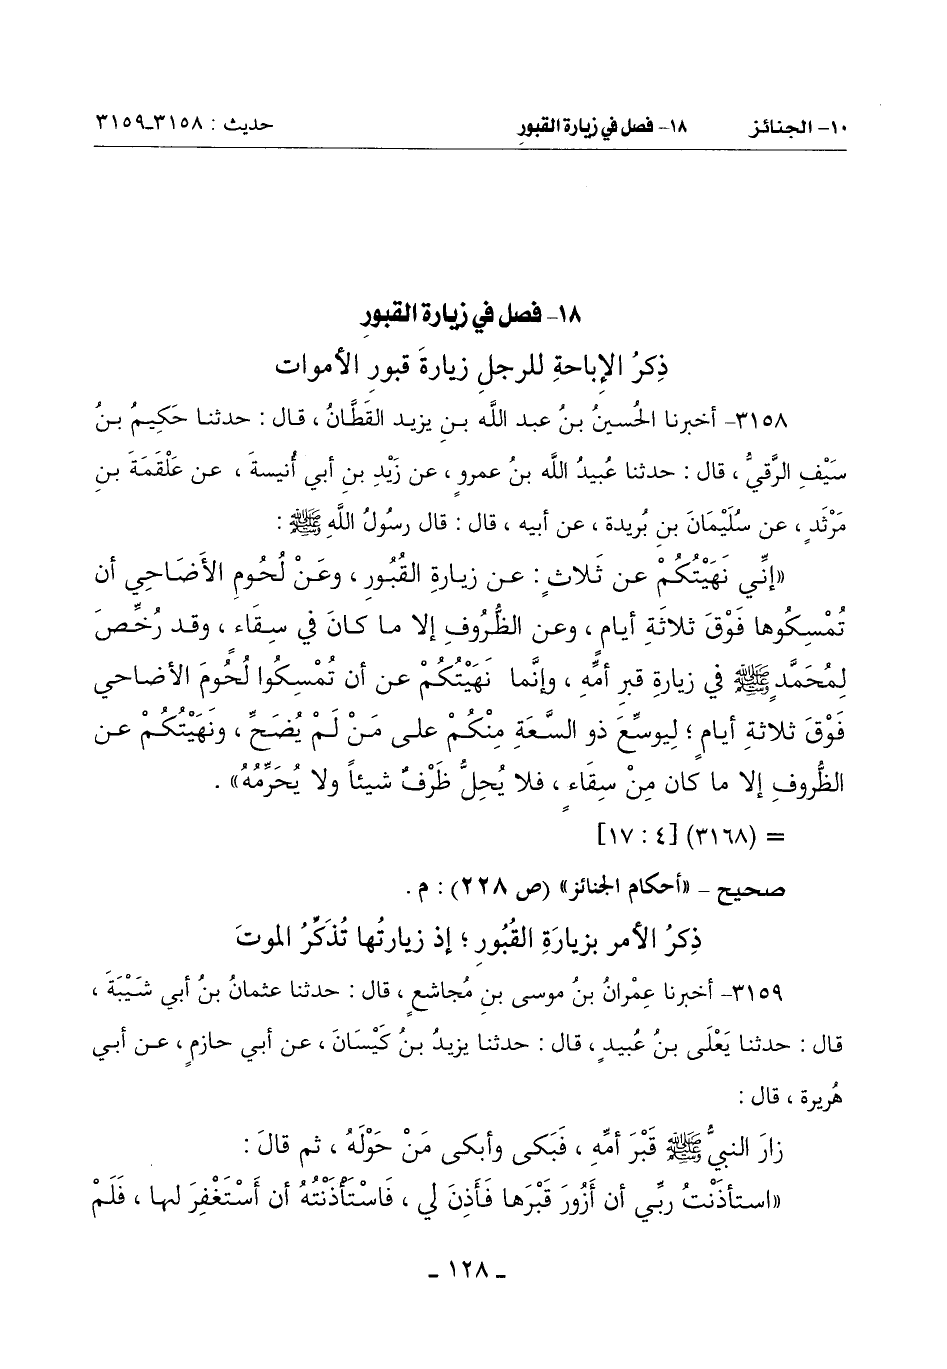 ١٠- الجنائز ١٨- فصل في زيارة القبورِ حديث : ٣١٥٨ـ٣١٥٩
١٨- فصل في زيارة القبورِ
ذِكرُ الإباحةِ للرجلِ زيارةَ قبورِ الأموات
٣١٥٨- أخبرنا الحُسينُ بنُ عبد اللَّه بـنِ يزيد القَطَّانُ ، قال : حدثنـا حَكِيمُ بـنُ
سَيْفِ الرَّقيُّ ، قال : حدثنا عُبيدُ اللَّه بنُ عمروٍ ، عن زَيْدِ بنِ أبي أُنيسةَ ، عـن عَلْقمَةَ بنِ
مَرْثَدٍ ، عن سُلَيْمَانَ بنِ بُريدة ، عن أبيه ، قال : قال رسولُ اللَّهِ ﷺ :
«إنِّي نَهَيْتُكُمْ عن ثَلاثٍ : عـن زيـارةِ القُبُـورِ ، وعَـنْ لُحُـومِ الأَضَـاحي أن
تُمْسِكُوها فَوْقَ ثلاثَةِ أيامٍ ، وعـن الظُّرُوفِ إلا مـا كـانَ في سِـقَاءٍ ، وقـد رُخِّـصَ
لِمُحَمَّدٍ ﷺ في زيارةِ قبرِ أمِّهِ ، وإنَّما نَهَيْتُكُمْ عـن أن تُمْسِـكُوا لُحُومَ الأضـاحي
فَوْقَ ثلاثةِ أيامٍ ؛ لِيوسِّعَ ذو السَّعَةِ مِنْكُمْ علـى مَـنْ لَـمْ يُضَحِّ ، ونَهَيْتُكُمْ عـن
الظُّروفِ إلا ما كان مِنْ سِقَاءٍ ، فلا يُحِلُّ ظَرْفٌ شيئاً ولا يُحَرِّمُهُ» .
= (٣١٦٨) [٤ : ١٧]
صحيح – «أحكام الجنائز» (ص ٢٢٨) : م .
ذِكرُ الأمرِ بزيارَةِ القُبُورِ ؛ إذ زيارتُها تُذَكِّرُ الموتَ
٣١٥٩- أخبرنا عِمْرانُ بنُ موسى بنِ مُجاشعٍ ، قال : حدثنا عثمانُ بنُ أبي شَيْبَةَ ،
قال : حدثنا يَعْلَى بـنُ عُبيدٍ ، قال : حدثنـا يزيدُ بـنُ كَيْسَانَ ، عـن أبـي حازمٍ ، عـن أبـي
هُريرة ، قال :
زارَ النبيُّ ﷺ قَبْرَ أمِّهِ ، فَبَكى وأبكى مَنْ حَوْلَهُ ، ثم قالَ :
«استأذَنْتُ ربِّي أن أَزُورَ قَبْرَها فَأَذِنَ لي ، فَاسْتَأْذَنْتُهُ أن أَسْتَغْفِرَ لهـا ، فَلَمْ
ـ ١٢٨ ـ